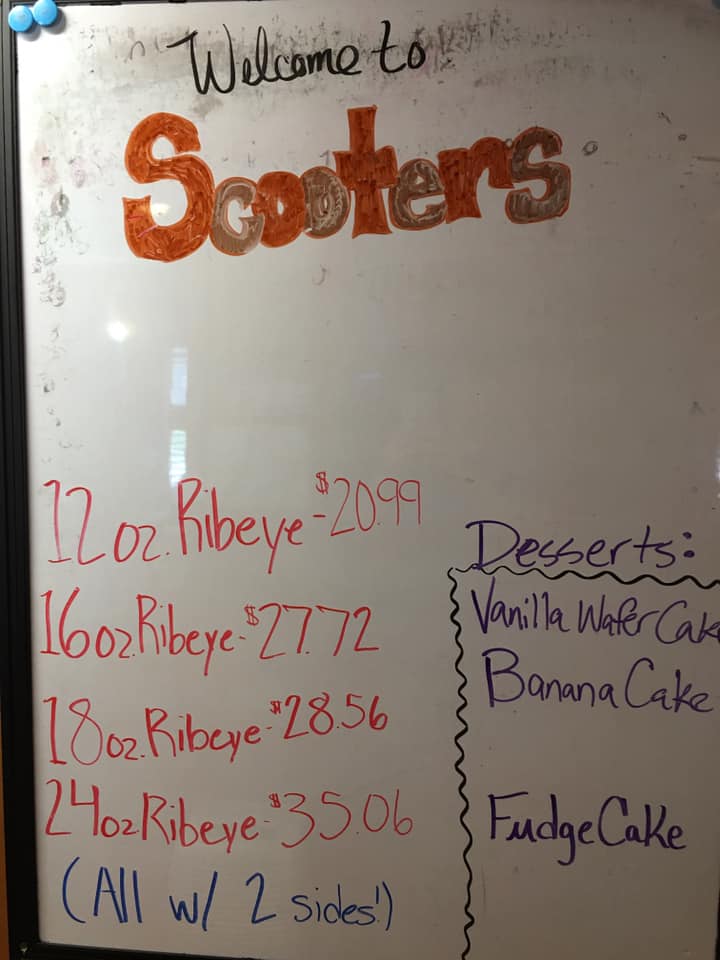 Welcome to
Scooters
12 oz. Ribeye - $20.99
16 oz. Ribeye - $27.72
18 oz. Ribeye - $28.56
24 oz Ribeye - $35.06
(All w/ 2 sides!)
Desserts:
Vanilla Wafer Cake
Banana Cake
Fudge Cake